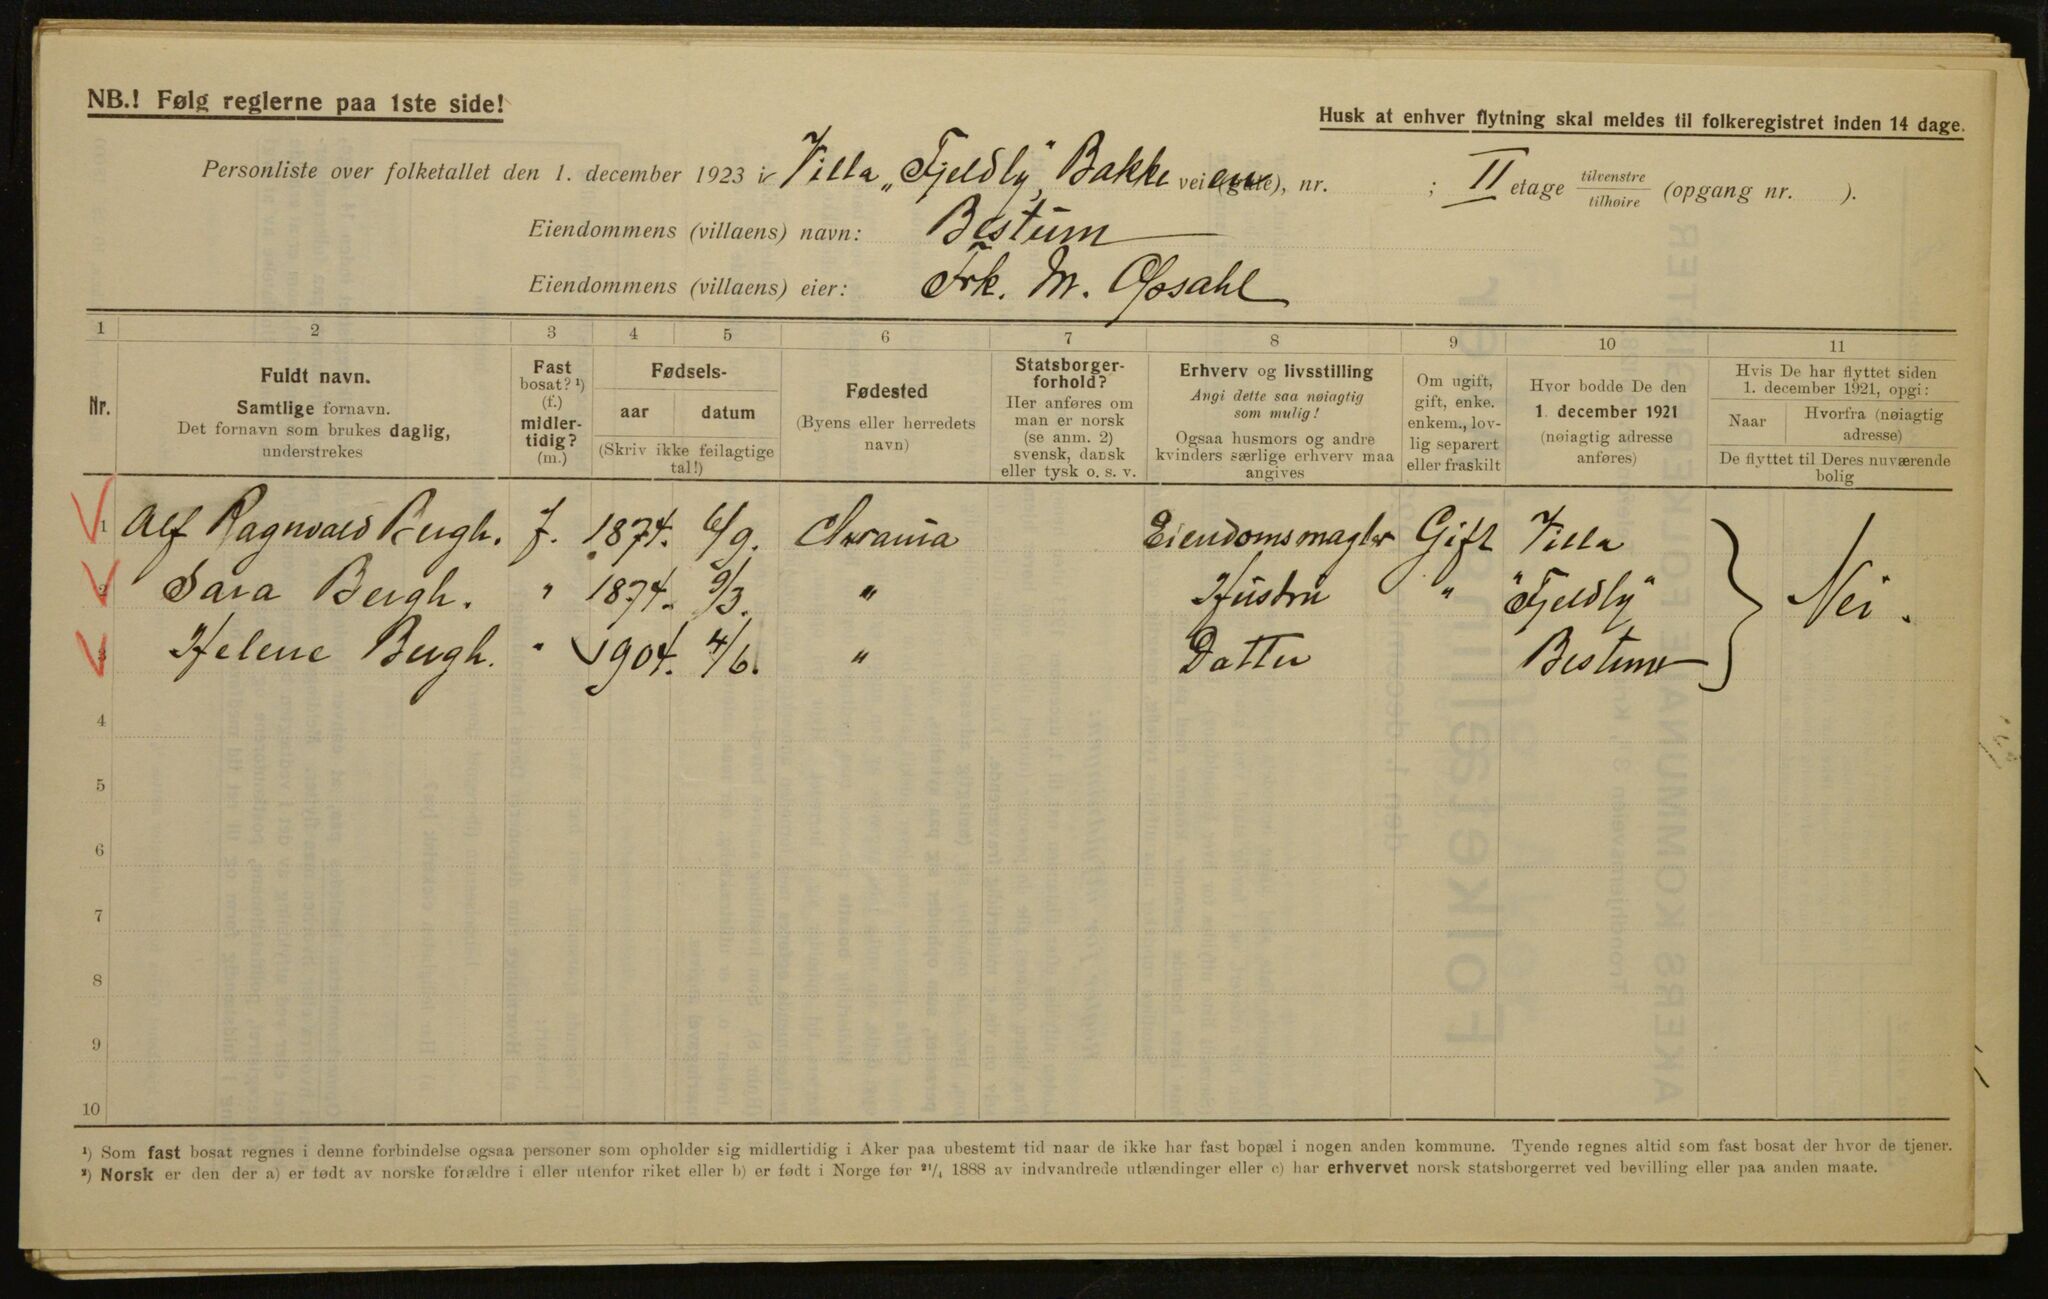 NB.! Følg reglerne paa 1ste side!
Husk at enhver flytning skal meldes til folkeregistret inden 14 dage.
Personliste over folketallet den 1. december 1923 i Villa „Fjeldly", Bakkeveien (gate), nr. ; II etage tilvenstre tilhøire (opgang nr. ).
Eiendommens (villaens) navn: Bestum
Eiendommens (villaens) eier: Frk. M. Opsahl
1 2 3 4 5 6 7 8 9 10 11
Nr.
Fuldt navn.
Samtlige fornavn.
Det fornavn som brukes daglig,
understrekes
Fast
bosat? ¹)
(f.)
midler-
tidig?
(m.)
Fødsels-
aar datum
(Skriv ikke feilagtige
tal!)
Fødested
(Byens eller herredets
navn)
Statsborger-
forhold?
Her anføres om
man er norsk
(se anm. 2)
svensk, dansk
eller tysk o. s. v.
Erhverv og livsstilling
Angi dette saa nøiagtig
som mulig!
Ogsaa husmors og andre
kvinders særlige erhverv maa
angives
Om ugift,
gift, enke.
enkem., lov-
lig separert
eller fraskilt
Hvor bodde De den
1. december 1921
(nøiagtig adresse
anføres)
Hvis De har flyttet siden
1. december 1921, opgi:
Naar Hvorfra (nøiagtig
adresse)
De flyttet til Deres nuværende
bolig
1 Alf Ragnvald Bergh. f. 1874. 6/9. Chrania Eiendomsmagler Gift Villa
2 Sara Bergh. " 1874. 9/3. " Hustru " "Fjeldly" Nei.
3 Helene Bergh. " 1904. 4/6. " Datter Bestum
4
5
6
7
8
9
10
¹) Som fast bosat regnes i denne forbindelse ogsaa personer som opholder sig midlertidig i Aker paa ubestemt tid naar de ikke har fast bopæl i nogen anden kommune. Tyende regnes altid som fast bosat der hvor de tjener.
²) Norsk er den der a) er født av norske forældre i eller utenfor riket eller b) er født i Norge før ²¹/₄ 1888 av indvandrede utlændinger eller c) har erhvervet norsk statsborgerret ved bevilling eller paa anden maate.